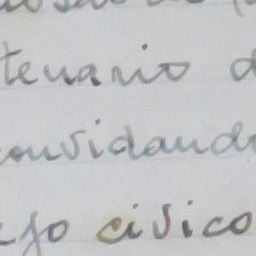 tenario d
convidando
ejo civico